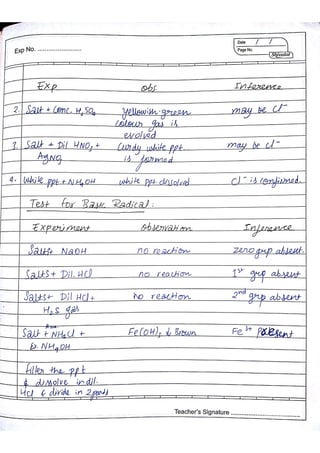 Date / /
Exp No. Page No.
Exp obs Inference
2. Salt + Conc. H2SO4 yellowish green may be Cl-
colour gas is
evolved
3. Salt + Dil HNO3 + Curdy white ppt. may be Cl-
AgNO3 is formed
4. white ppt + NH4OH white ppt dissolved Cl- is confirmed.
Test for Basic Radical:
Experiment Observation Inference
Salt + NaOH no reaction zero grp absent.
Salts + Dil. HCl no reaction 1st grp absent
Salts + Dil HCl + no reaction 2nd grp absent
H2S gas
Salt + NH4Cl + Fe(OH)3 ↓ Brown Fe3+ present
NH4OH
filter the ppt
& dissolve in dil.
HCl & divide in 2 parts
Teacher's Signature